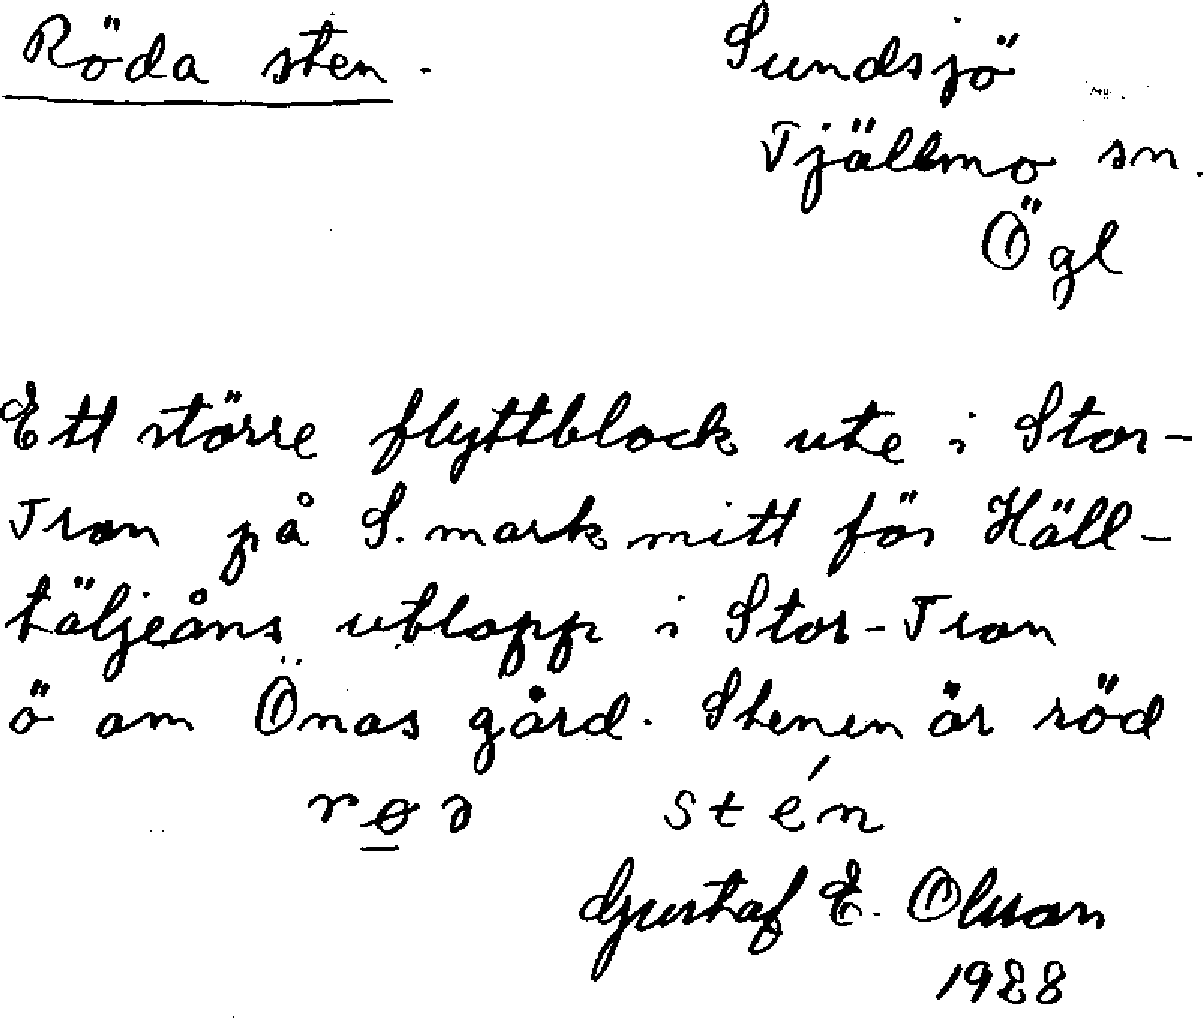 Röda sten.
Sundsjö
Tjällmo sn.
Ögl
Ett större flyttblock ute i Stor-
Tron på S. mark mitt för Häll-
täljeåns utlopp i Stor-Tron
ö om Önas gård. Stenen är röd
rø̲ə stén
Gustaf E. Olsson
1928